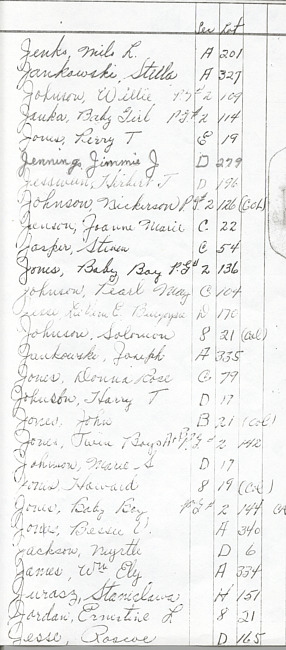 Sec Lot
Jenks, Milo L. A 201
Jankowski, Stella A 327
Johnson, Willie P.G.#2 109
Janka, Baby Girl P.G.#2 114
Jones, Perry T E 19
Jennings, Jimmie J D 279
Herbert J D 196
Johnson, Nickerson P.G.2 126 (Col)
Jenson, Joanne Marie C 22
Jasper, Steven C 54
Jones, Baby Boy P.G.#2 136
Johnson, Pearl May C 104
D 170
Johnson, Solomon 8 21 (Col)
Jankowski, Joseph A 335
Jones, Donna Rose C 79
Johnson, Harry T D 17
Jones, John B 21 (Col)
Jones, Twin Boys P.G.#2 142
Johnson, Marie S D 17
Jones, Howard 8 19 (Col)
Jones, Baby Boy P.G.#2 144
Jones, Bessie A 340
Jackson, Myrtle D 6
James, Wm Ely A 334
Jurasz, Stanislawa H 151
Jordan, Ernestine L 8 21
Jesse, Roscoe D 165